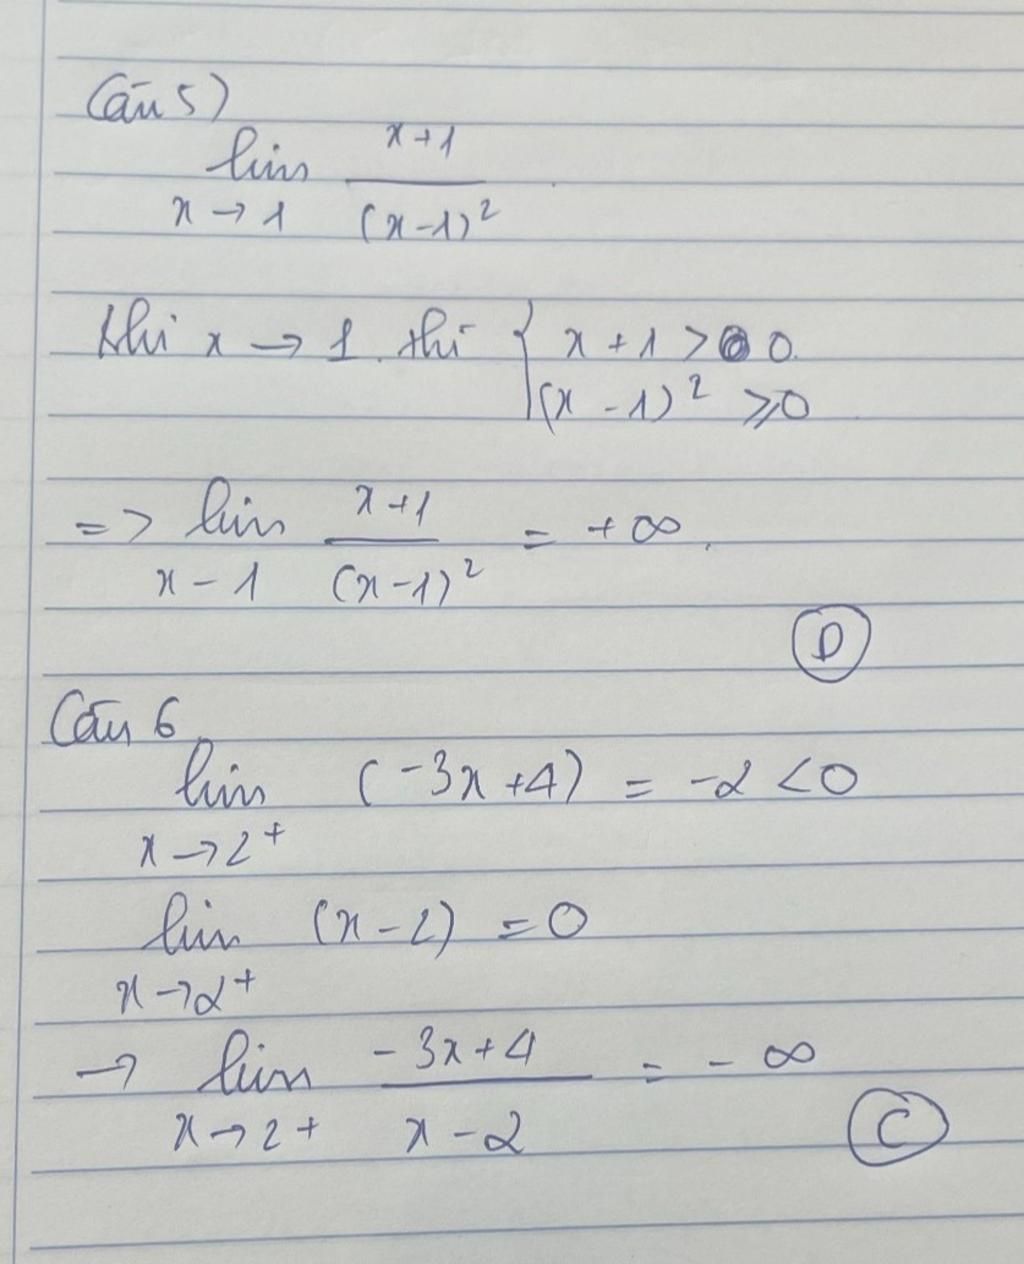 Câu 5)
lim x+1
x → 1 (x-1)²
khi x → 1. thì { x + 1 > 0.
(x - 1)² ⩾ 0
=> lim x+1 = +∞.
x - 1 (x-1)²
D
Câu 6
lim (-3x+4) = -2 < 0
x → 2⁺
lim (x-2) = 0
x → 2⁺
→ lim -3x+4 = - ∞
x → 2+ x - 2
C